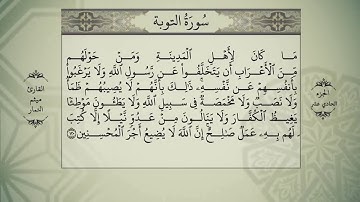 سُورَةُ التوبة
مَا كَانَ لِأَهْلِ ٱلْمَدِينَةِ وَمَنْ حَوْلَهُم
مِّنَ ٱلْأَعْرَابِ أَن يَتَخَلَّفُوا۟ عَن رَّسُولِ ٱللَّهِ وَلَا يَرْغَبُوا۟
بِأَنفُسِهِمْ عَن نَّفْسِهِۦ ذَٰلِكَ بِأَنَّهُمْ لَا يُصِيبُهُمْ ظَمَأٌ
وَلَا نَصَبٌ وَلَا مَخْمَصَةٌ فِى سَبِيلِ ٱللَّهِ وَلَا يَطَـُٔونَ مَوْطِئًا
يَغِيظُ ٱلْكُفَّارَ وَلَا يَنَالُونَ مِنْ عَدُوٍّ نَّيْلًا إِلَّا كُتِبَ
لَهُم بِهِۦ عَمَلٌ صَٰلِحٌ إِنَّ ٱللَّهَ لَا يُضِيعُ أَجْرَ ٱلْمُحْسِنِينَ ١٢٠
الجزء
الحادي عشر
القارئ
ميثم
التمار